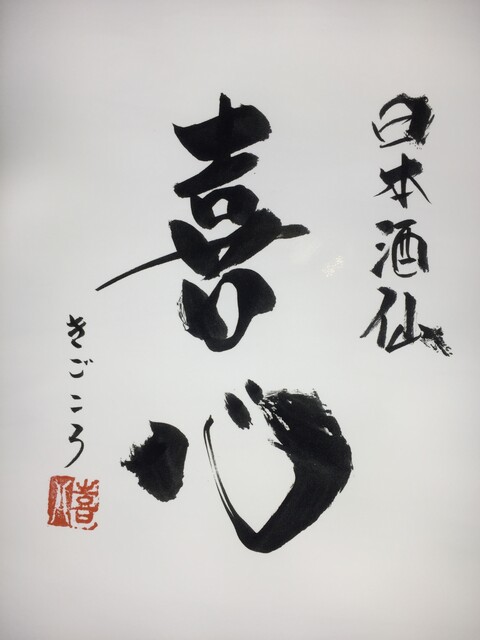 日本酒仙
喜心
きごころ
喜